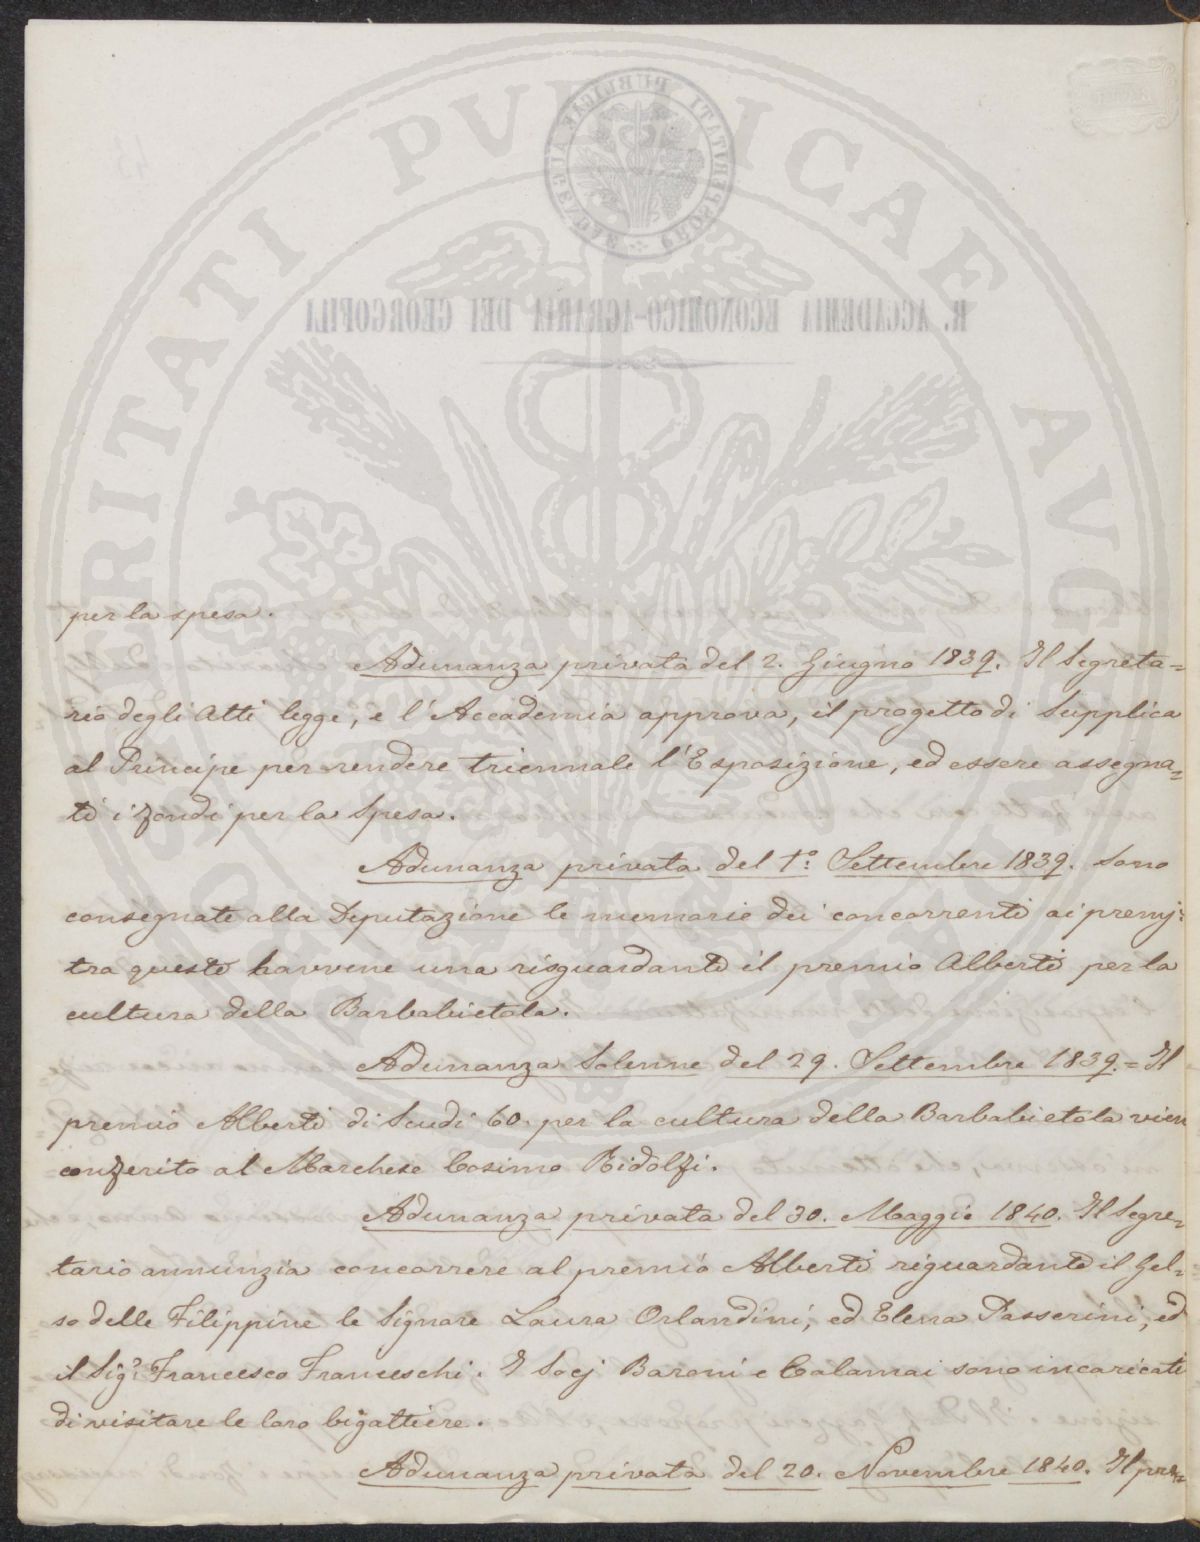 PROSPERITATI PUBLICAE AUGENDAE
R. ACCADEMIA ECONOMICO-AGRARIA DEI GEORGOFILI
per la spesa.
Adunanza privata del 2. Giugno 1839. Il Segreta=
rio degli Atti legge, e l'Accademia approva, il progetto di Supplica
al Principe per rendere triennale l'Esposizione, ed essere assegna=
ti i fondi per la Spesa.
Adunanza privata del 1.° Settembre 1839. Sono
consegnate alla Deputazione le memorie dei concorrenti ai premj:
tra queste havvene una risguardante il premio Alberti per la
cultura della Barbabietola.
Adunanza Solenne del 29. Settembre 1839. = Il
premio Alberti di Scudi 60. per la cultura della Barbabietola vien
conferito al Marchese Cosimo Ridolfi.
Adunanza privata del 30. Maggio 1840. Il Segre=
tario annunzia concorrere al premio Alberti riguardante il Gel=
so delle Filippine le Signore Laura Orlandini, ed Elena Passerini, ed
il Sig.r Francesco Franceschi. I Socj Baroni e Calamai sono incaricati
di visitare le loro bigattiere.
Adunanza privata del 20. Novembre 1840. Il pre=